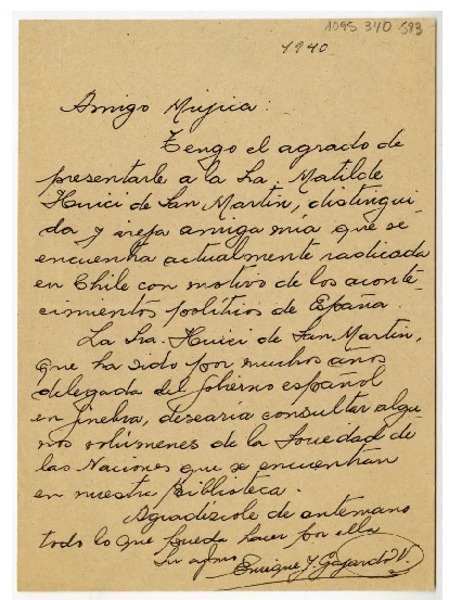 1095 340 583
1940
Amigo Mujica:
Tengo el agrado de
presentarle a la Sa. Matilde
Huici de San Martín, distingui-
da y vieja amiga mía que se
encuentra actualmente radicada
en Chile con motivo de los aconte-
cimientos políticos de España.
La Sra. Huici de San Martín,
que ha sido por muchos años
delegada del Gobierno español
en Jinebra, desearía consultar algu-
nos volúmenes de la Sociedad de
las Naciones que se encuentran
en nuestra Biblioteca.
Agradézcole de antemano
todo lo que pueda hacer por ella
Su afmo.
Enrique J. Gajardo V.